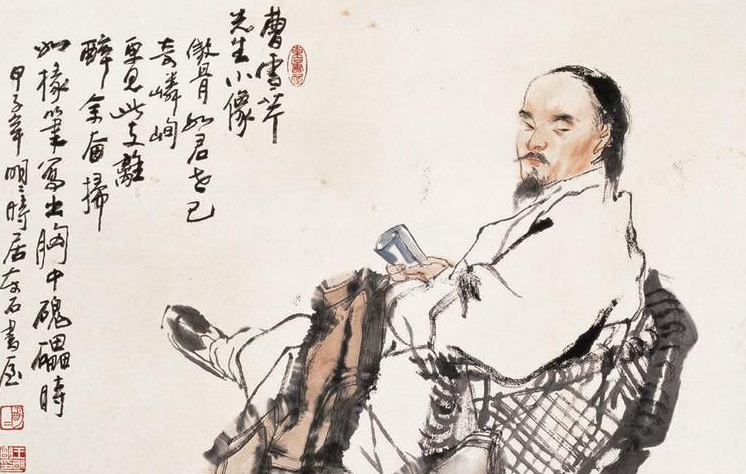 曹雪芹
先生小像
傲骨如君世已
奇嶙峋
更见此支離
醉余奋掃
如椽筆寫出胸中磈礧時
甲子年明明時居奇石書屋